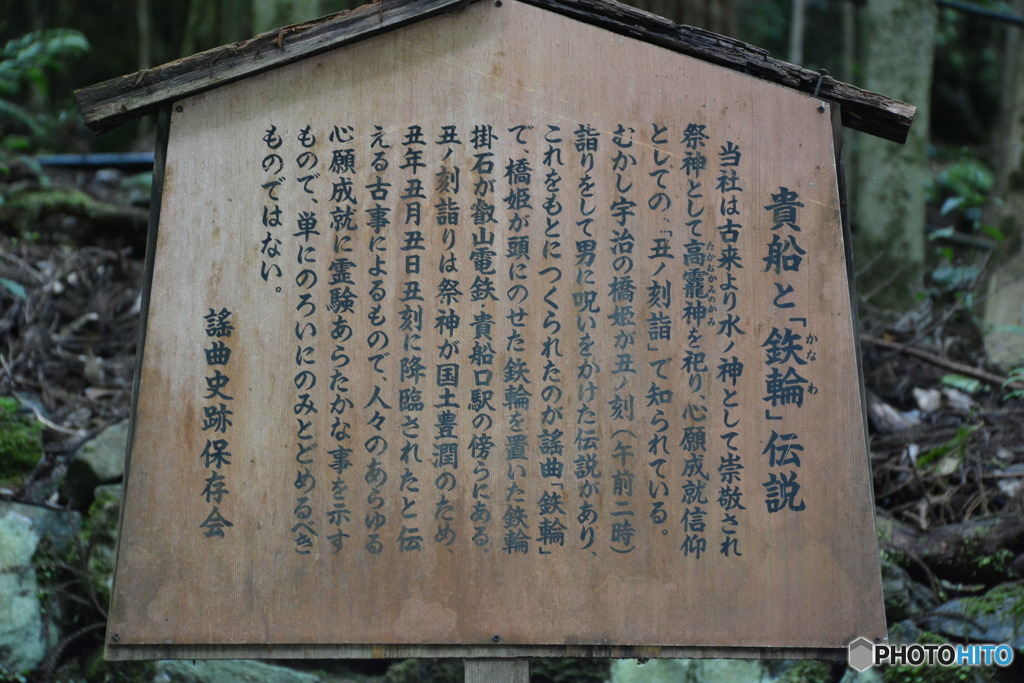 貴船と「鉄輪」伝説
かなわ
当社は古来より水ノ神として崇敬され
祭神として高龗神を祀り、心願成就信仰
たかおかみのかみ
としての「丑ノ刻詣」で知られている。
むかし宇治の橋姫が丑ノ刻(午前二時)
詣りをして男に呪いをかけた伝説があり、
これをもとにつくられたのが謡曲「鉄輪」
で、橋姫が頭にのせた鉄輪を置いた鉄輪
掛石が叡山電鉄・貴船口駅の傍らにある。
丑ノ刻詣りは祭神が国土豊潤のため、
丑年丑月丑日丑刻に降臨されたと伝
える古事によるもので、人々のあらゆる
心願成就に霊験あらたかな事を示す
もので、単にのろいにのみとどめるべき
ものではない。
謡曲史跡保存会
PHOTOHITO